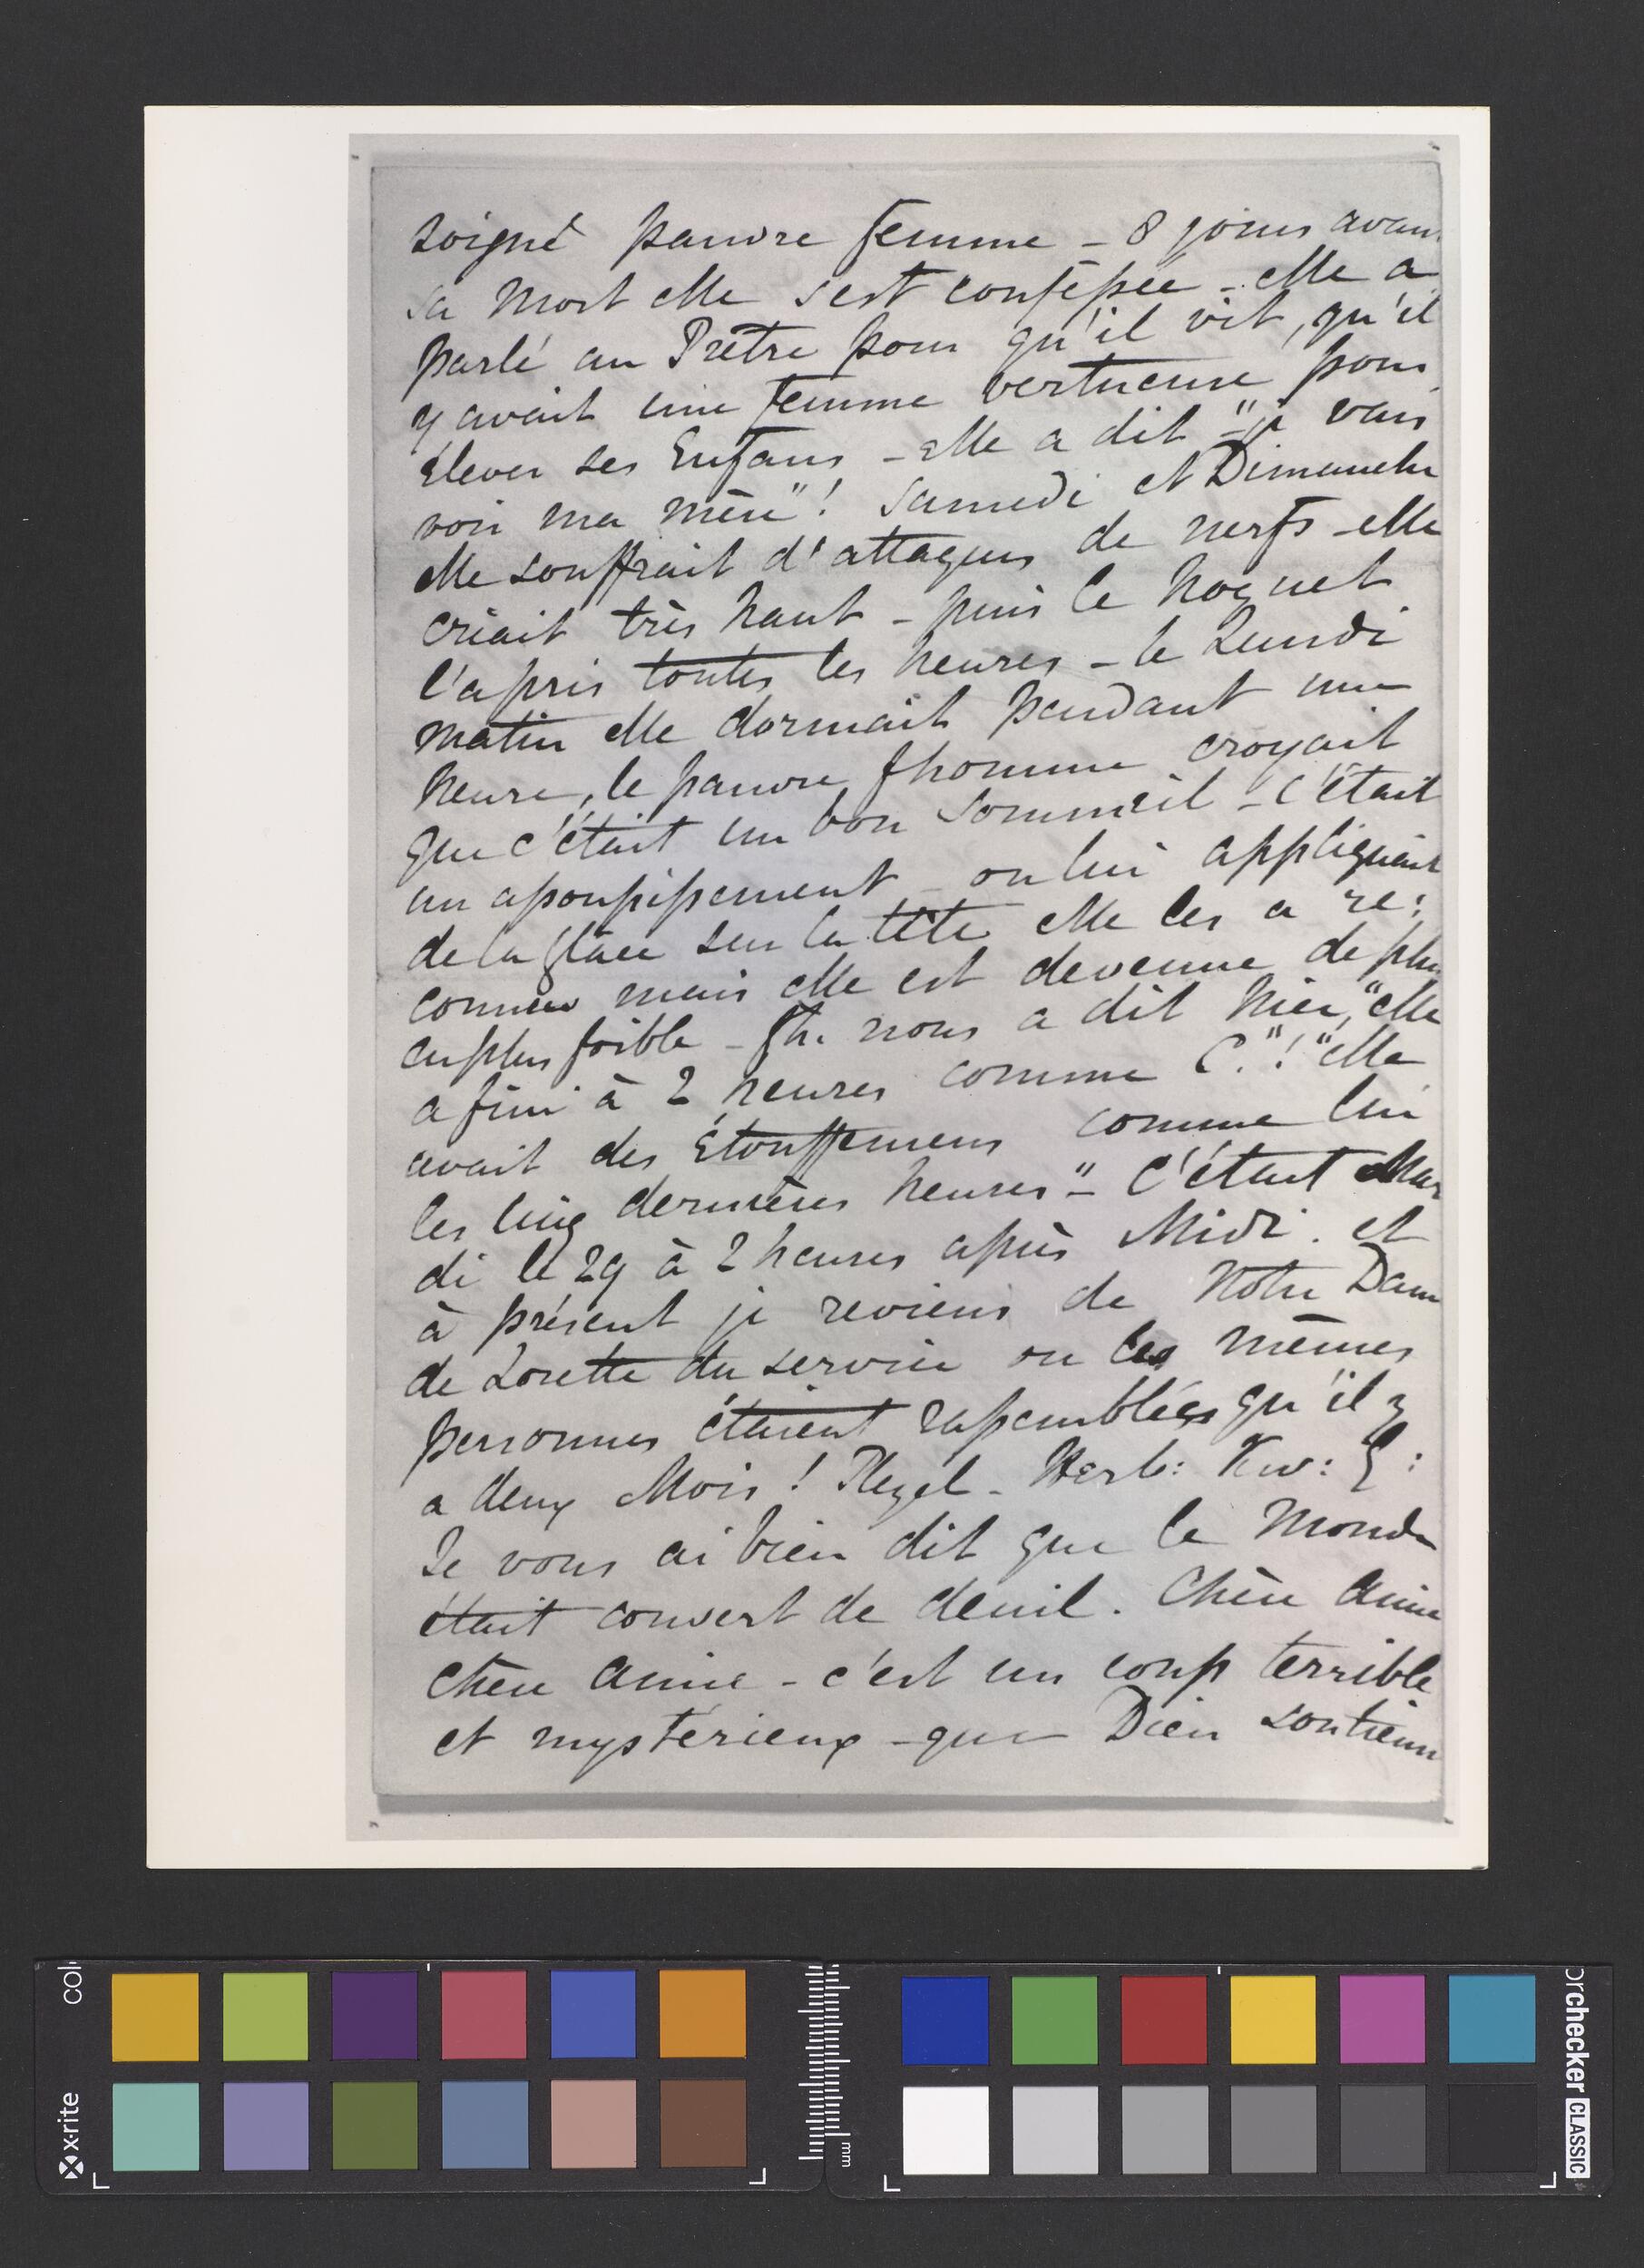 soigné pauvre femme - 8 jours avan
sa Mort elle s'est confessée - elle a
parlé au Prêtre pour qu'il vit, qu'il
y avait une femme vertueuse pour
élever ses Enfans - elle a dit "je vais
voir ma mère"! Samedi et Dimanche
elle souffrait d'attaques de nerfs - elle
criait très haut - puis le hoquet
l'a pris toutes les heures - le Lundi
matin elle dormait pendant une
heure, le pauvre fhomme croyait
que c'était un bon sommeil - c'était
un assoupissement - on lui appliquait
de la glace sur la tête elle les a re:
connus mais elle est devenue de plus
en plus foible - fh. nous a dit hier, "elle
a fini à 2 heures comme C."! "elle
avait des Étouffemens comme lui
les cinq dernières heures" - C'était Mar
di le 29 à 2 heures après Midi. et
à présent je reviens de Notre Dame
de Lorette du service ou les mêmes
personnes étaient rassemblées qu'il y
a deux Mois! Pleyel - Herb: Kw: G:
Je vous ai bien dit que le Monde
était couvert de deuil. Chère Amie
chère Amie - c'est un coup terrible
et mystérieux - que Dieu soutienne
x-rite
col
mm
orchecker CLASSIC